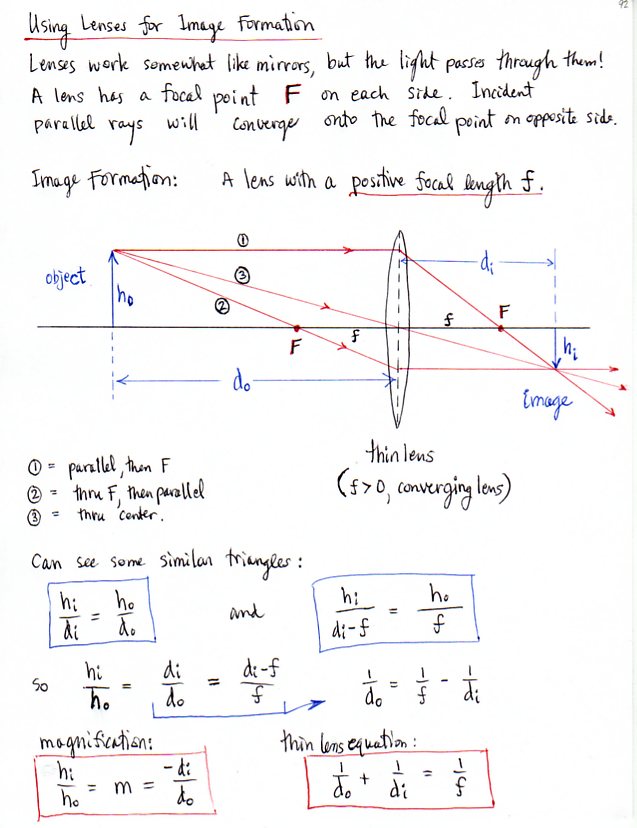 92
Using Lenses for Image Formation
Lenses work somewhat like mirrors, but the light passes through them!
A lens has a focal point F on each side. Incident
parallel rays will converge onto the focal point on opposite side.
Image Formation: A lens with a positive focal length f.
①
di
object
③
ho
②
f
F
F
f
hi
do
image
① = parallel, then F
② = thru F, then parallel
③ = thru center.
thin lens
(f>0, converging lens)
Can see some similar triangles:
hi/di = ho/do and hi/(di-f) = ho/f
so hi/ho = di/do = (di-f)/f 1/do = 1/f - 1/di
magnification: thin lens equation:
hi/ho = m = -di/do 1/do + 1/di = 1/f